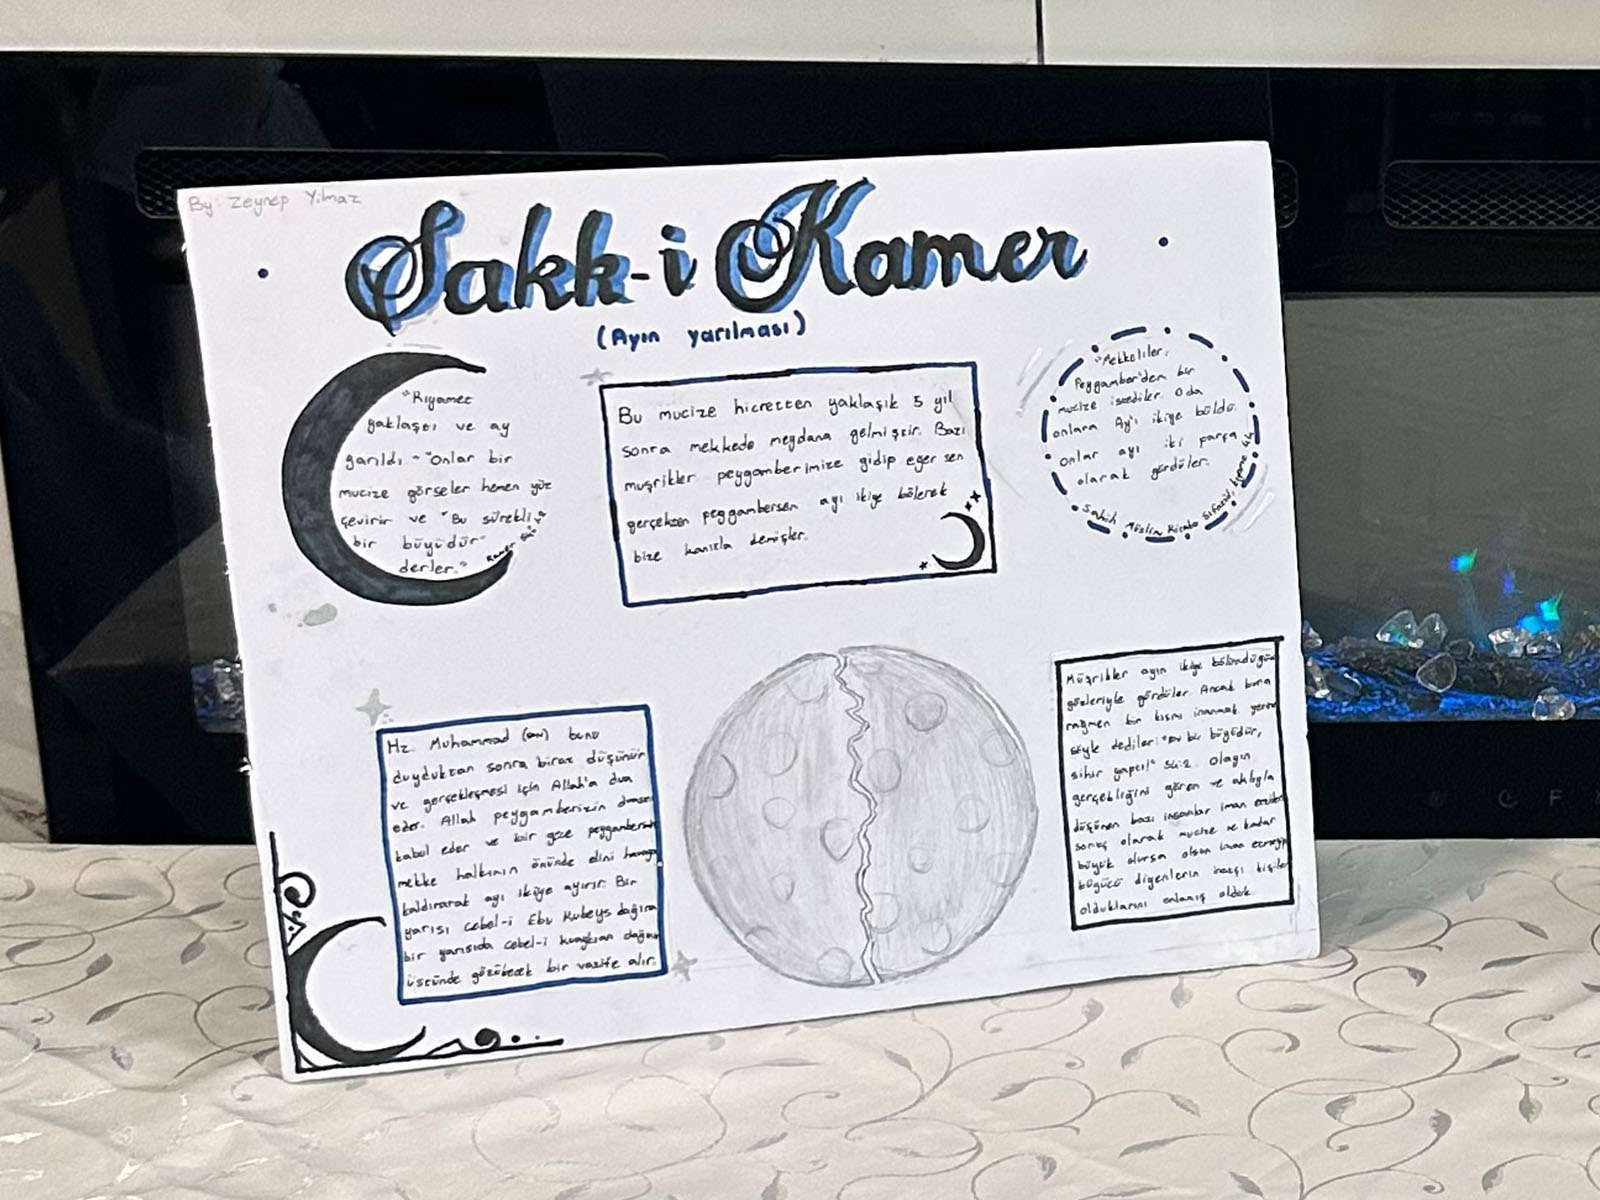 By: Zeynep Yılmaz
Sakk-i Kamer
(Ayın yarılması)
"Kıyamet
yaklaştı ve ay
yarıldı" "Onlar bir
mucize görseler hemen yüz
çevirir ve "Bu sürekli
bir büyüdür"
derler."
Kamer
Bu mucize hicretten yaklaşık 5 yıl
sonra mekkede meydana gelmiştir. Bazı
muşrikler peygamberimize gidip eğer sen
gerçekten peygambersen ayı ikiye bölerek
bize kanıtla demişler.
"Mekkeliler,
Peygamber'den bir
mucize istediler. O da
onlara Ay'ı ikiye böldü.
Onlar ayı iki parça
olarak gördüler.
Sahih Müslim Kitabı
Hz. Muhammad bunu
duyduktan sonra biraz düşünür
ve gerçekleşmesi için Allah'a dua
eder. Allah peygamberizin
kabul eder ve bir gece
mekke halkının önünde elini
kaldırarak ayı ikiye ayırır. Bir
yarısı cebel-i Ebu Kubeys dağına
bir yarısıda cebel-i
üstünde gözükecek bir vazife alır.
Müşrikler ayın ikiye bölündüğünü
gözleriyle gördüler. Ancak buna
rağmen bir kısmı inanmak yerine
şöyle dediler: "Bu bir büyüdür,
sihir yaptı!" Olayın
gerçekliğini gören ve aklıyla
düşünen bazı insanlar iman
sonuç olarak mucize ne kadar
büyük olursa olsun iman
büyücü diyenlerin inatçı kişiler
olduklarını anlamış olduk.